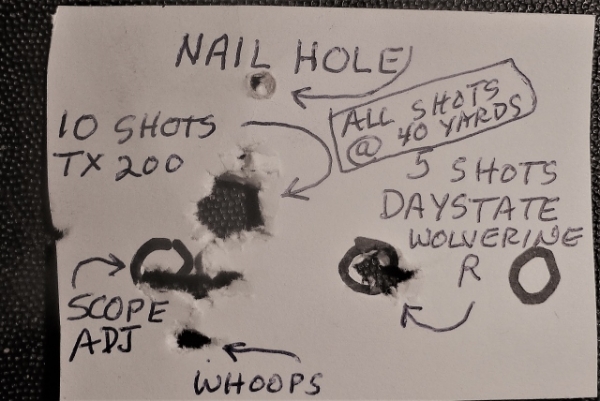 NAIL HOLE
ALL SHOTS
@ 40 YARDS
10 SHOTS
TX 200
5 SHOTS
DAYSTATE
WOLVERINE
R
SCOPE
ADJ
WHOOPS